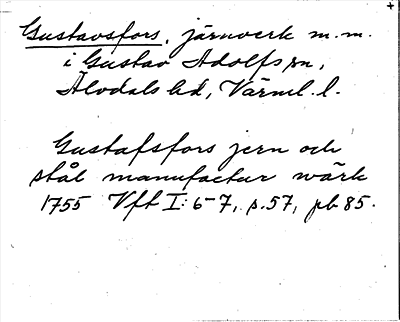 Gustavsfors, järnverk m.m.
i Gustav Adolfs sn,
Älvdals hd, Värml. l.
Gustafsfors jern och
stål manufactur wärk
1755 Vft I: 6-7, s. 57, pb 85.